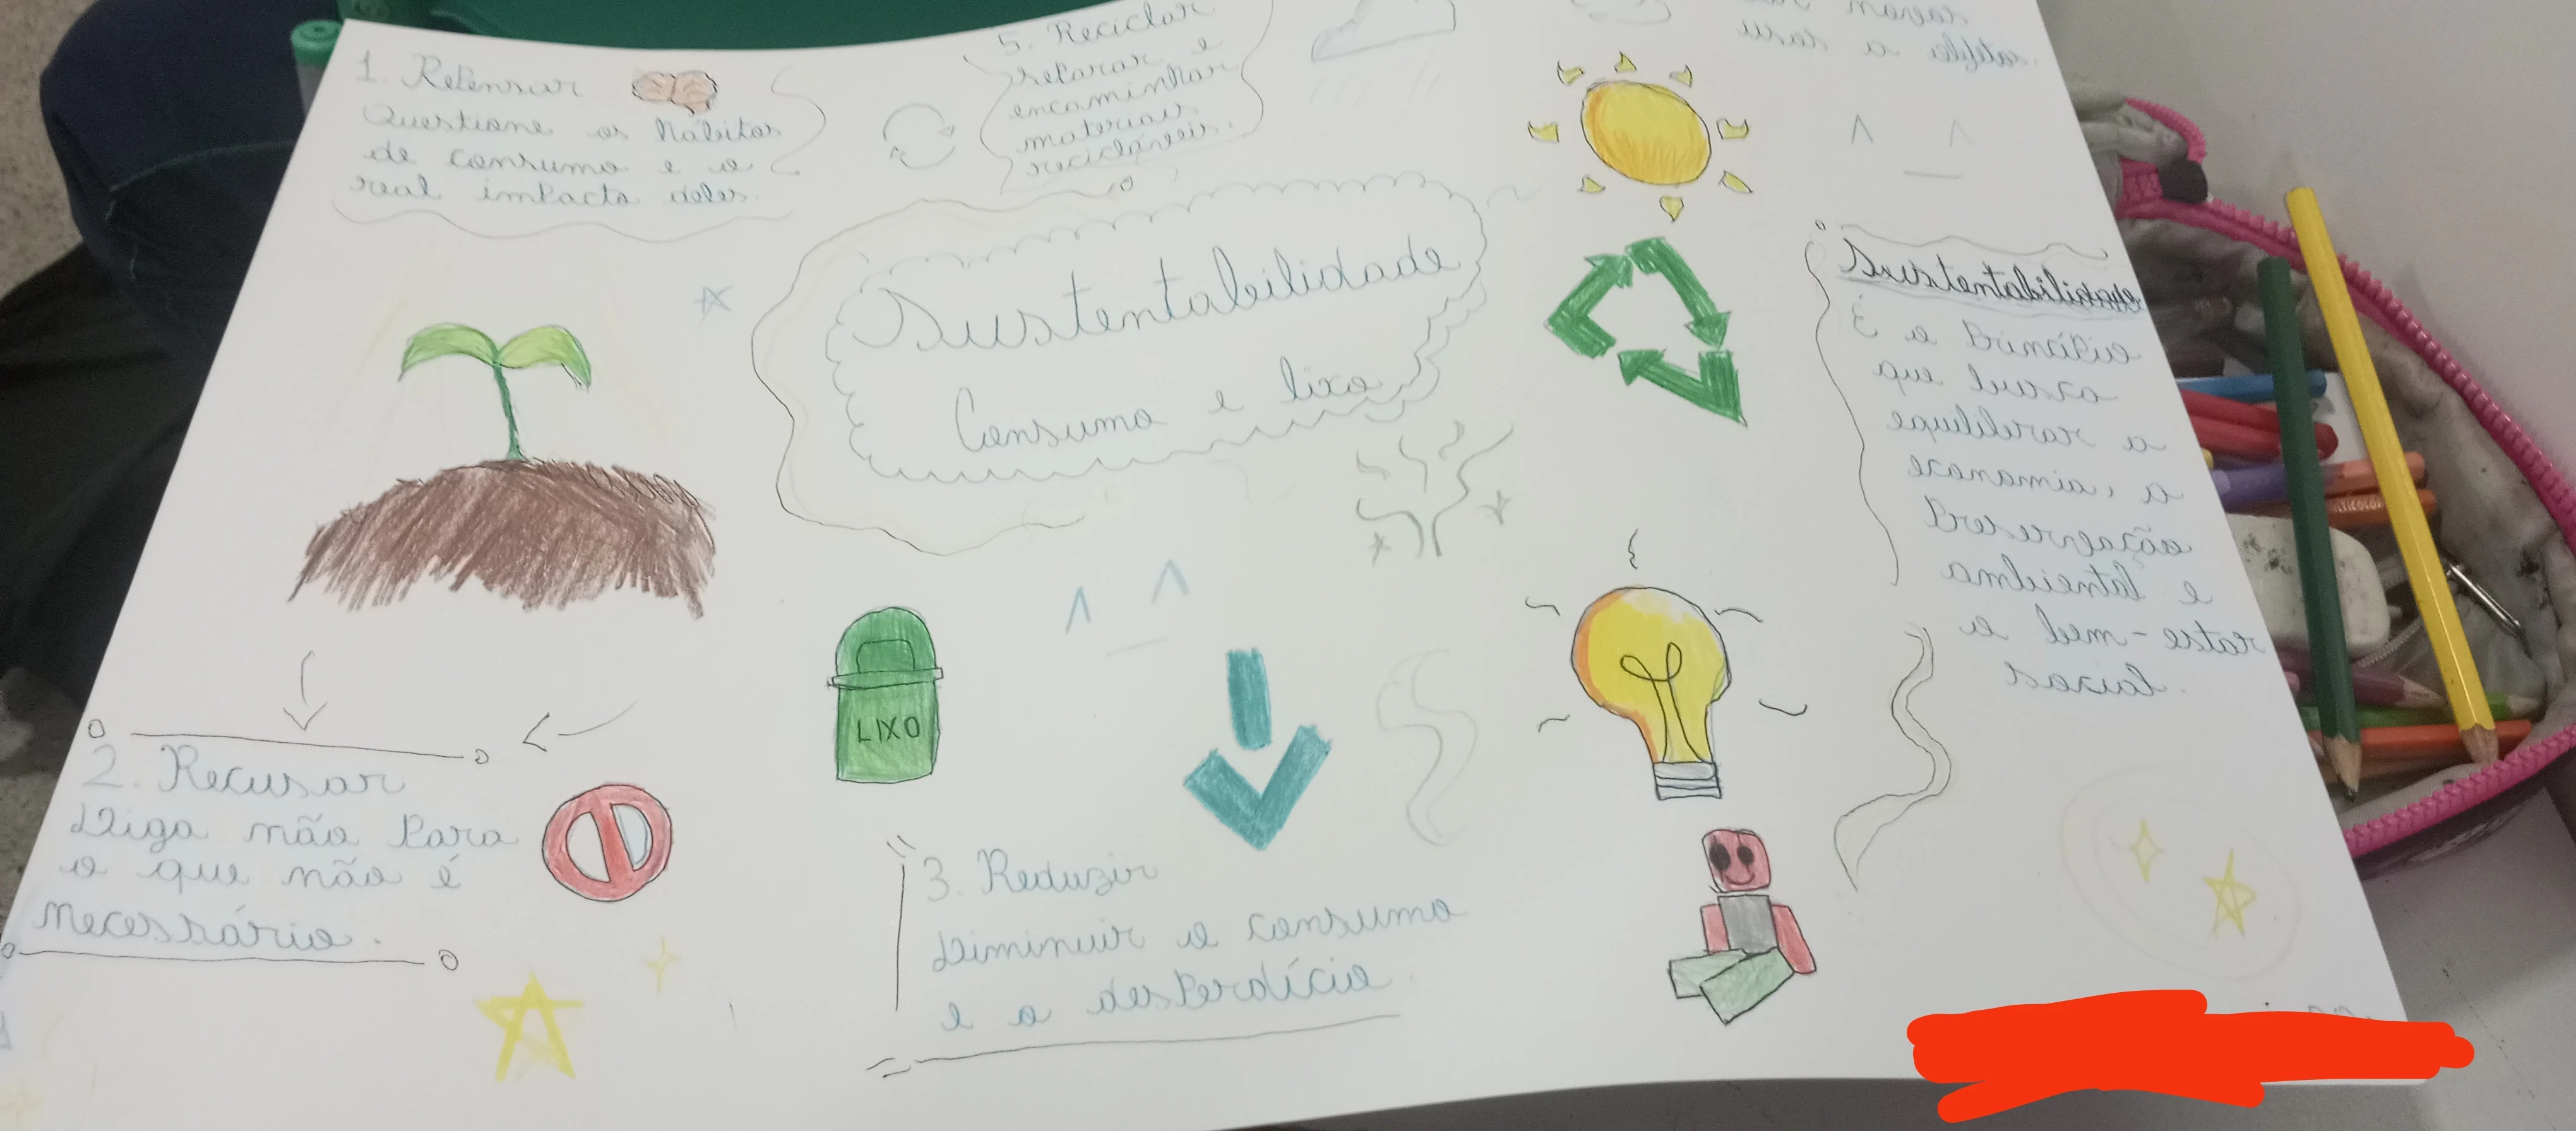 1. Repensar
Questione os hábitos
de consumo e o
real impacto deles.
5. Reciclar
separar e
encaminhar
materiais
recicláveis.
novos
usos a
Sustentabilidade
Consumo e lixo
Sustentabilidade
É o Princípio
que busca
equilibrar a
economia, a
Preservação
ambiental e
o bem-estar
social.
LIXO
2. Recusar
Diga não Para
o que não é
necessário.
3. Reduzir
Diminuir o consumo
e o desPerdício